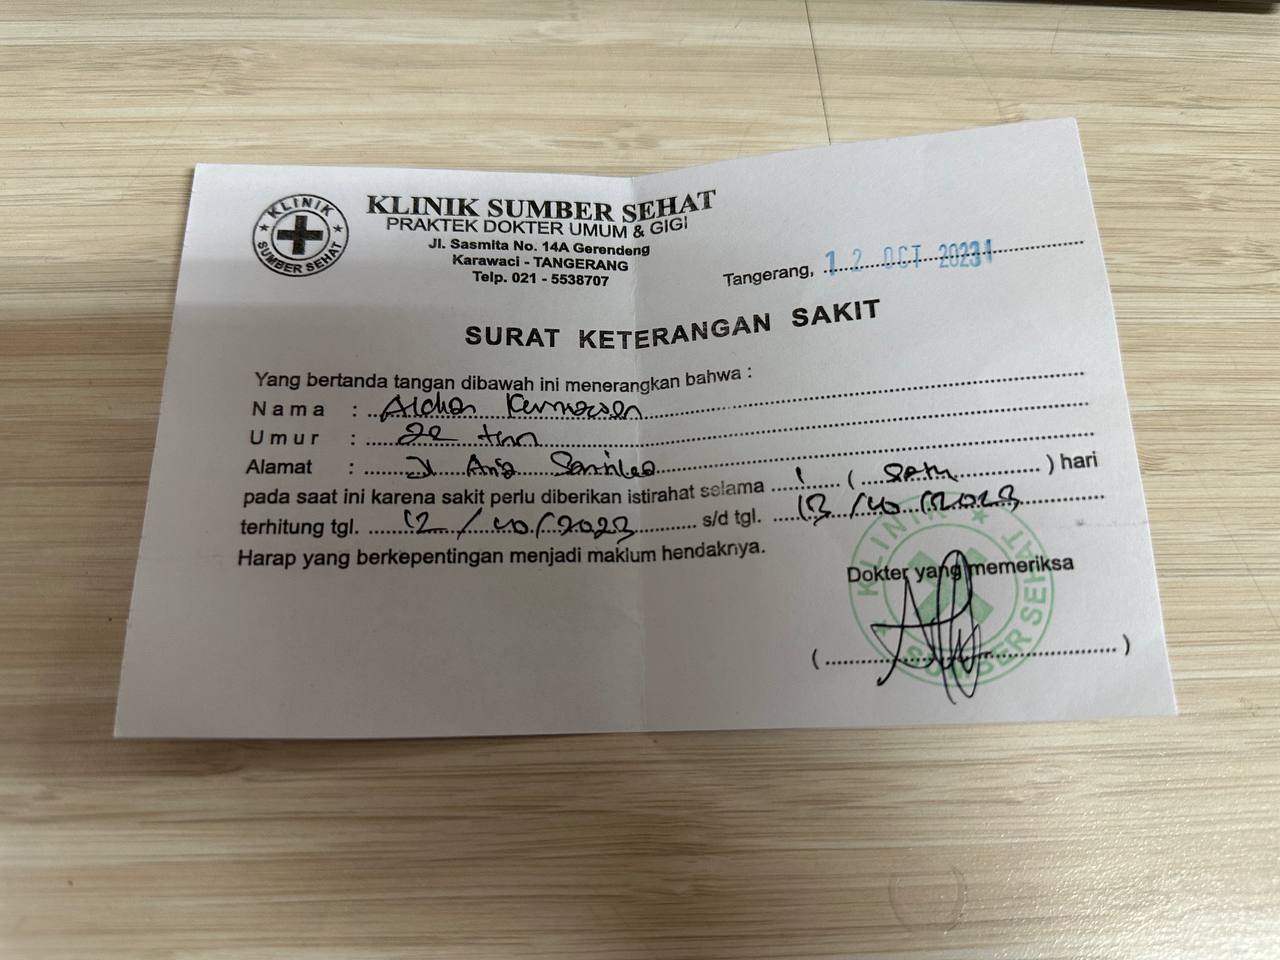 KLINIK
SUMBER SEHAT
KLINIK SUMBER SEHAT
PRAKTEK DOKTER UMUM & GIGI
Jl. Sasmita No. 14A Gerendeng
Karawaci - TANGERANG
Telp. 021 - 5538707
Tangerang, 12 OCT 2023
SURAT KETERANGAN SAKIT
Yang bertanda tangan dibawah ini menerangkan bahwa :
Nama :
Umur :
Alamat : Jl
pada saat ini karena sakit perlu diberikan istirahat selama 1 ( satu ) hari
terhitung tgl. 12/10/2023 s/d tgl. 13/10/2023
Harap yang berkepentingan menjadi maklum hendaknya.
Dokter yang memeriksa
KLINIK
SUMBER SEHAT
( )